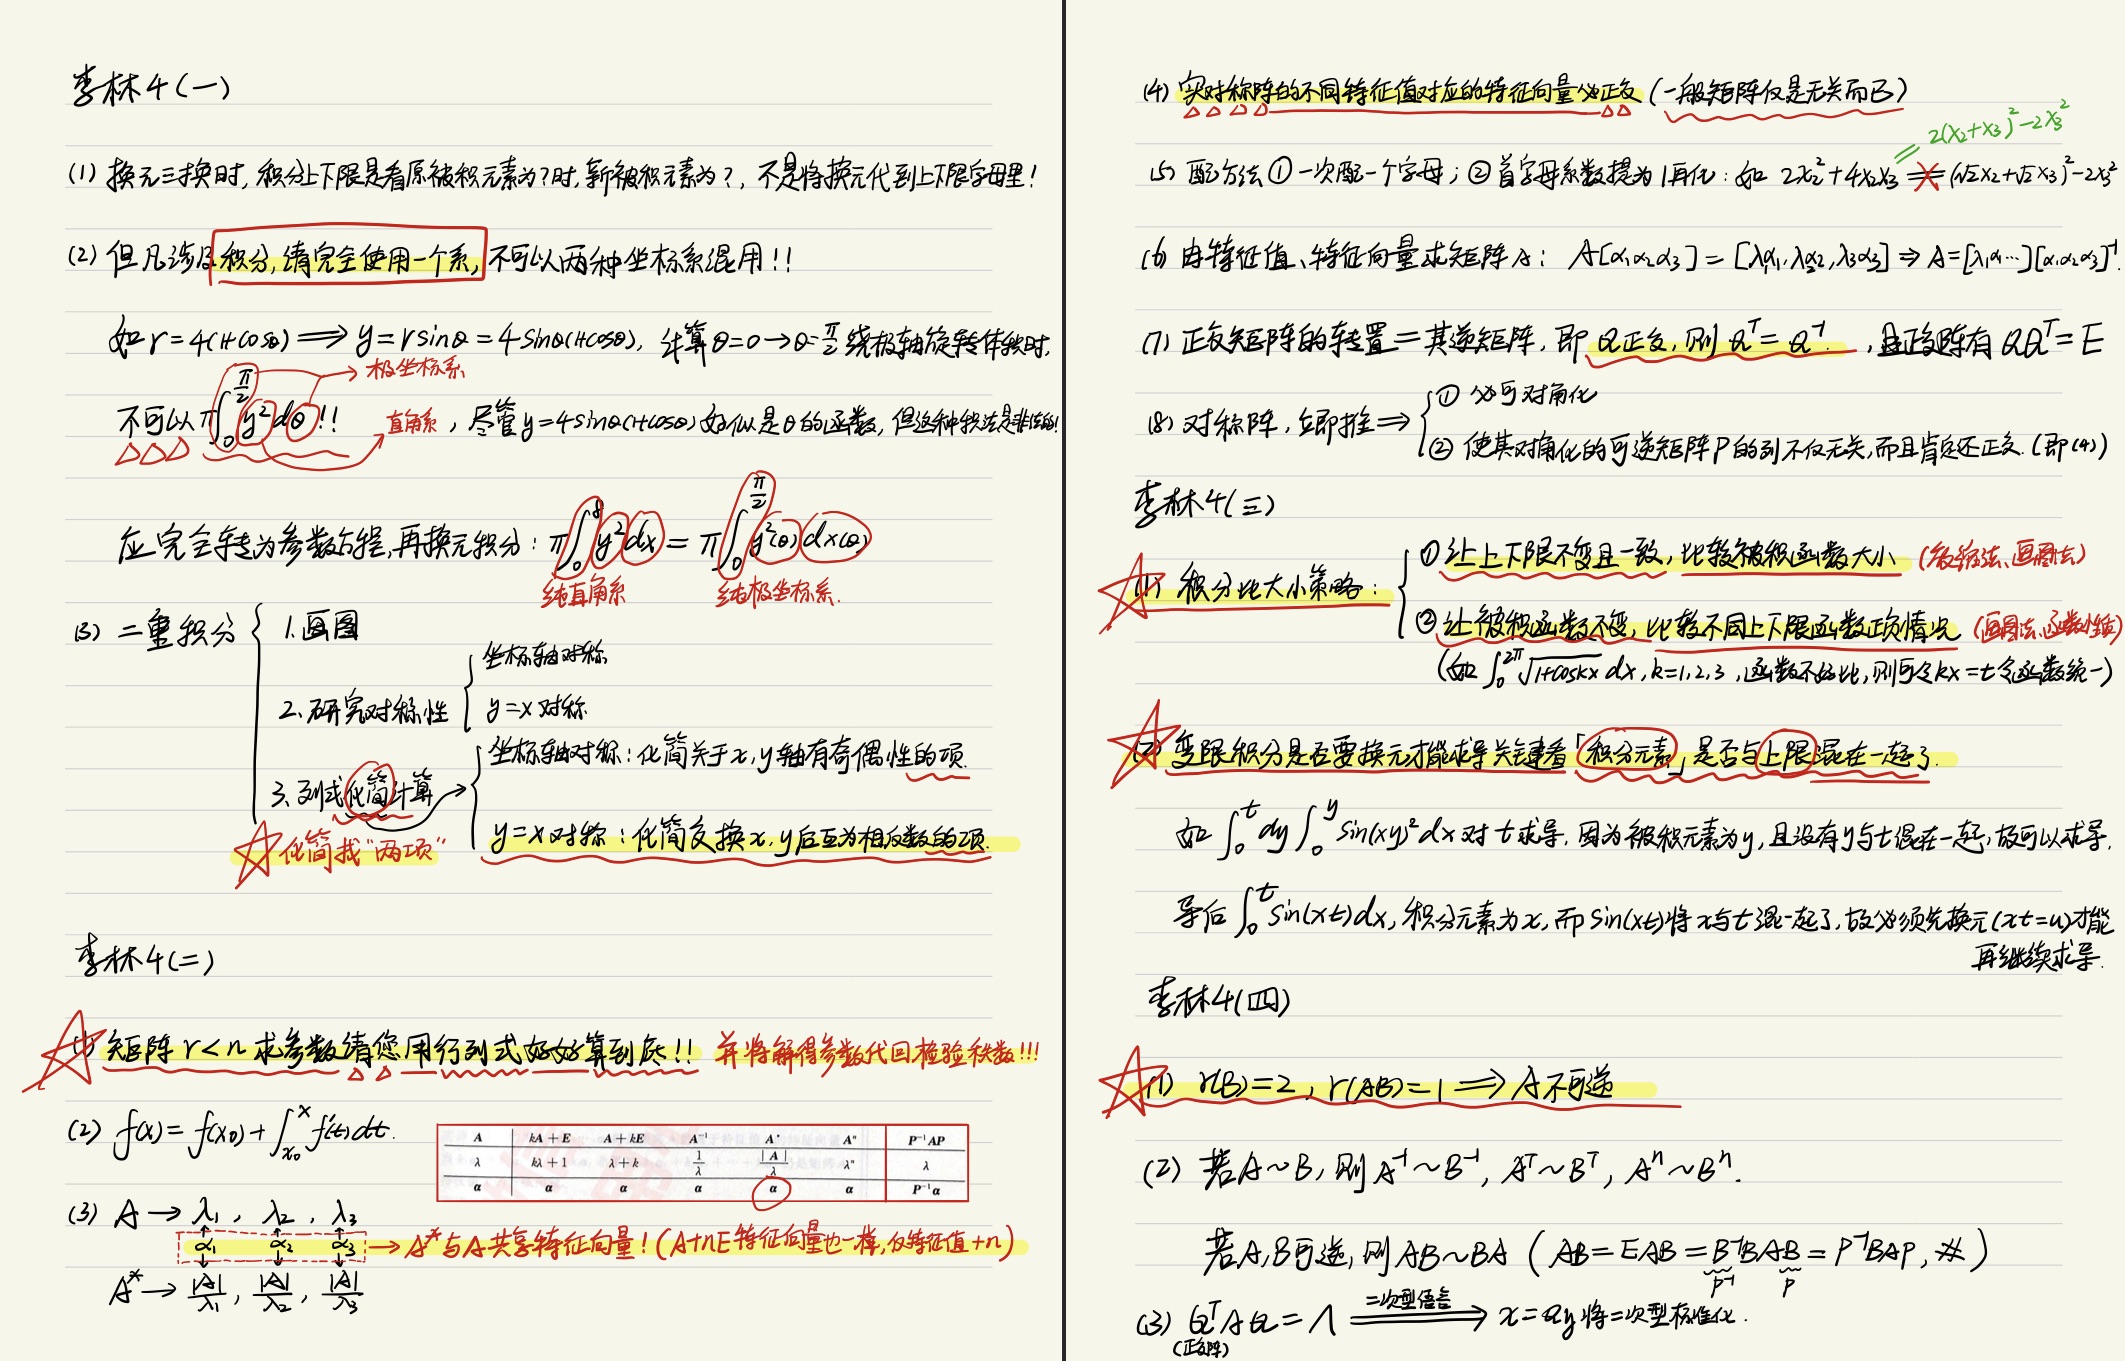 李林4(一)
(1) 换元三换时, 积分上下限是看原被积元素为?时, 新被积元素为?, 不是将换元代到上下限字母里!
(2) 但凡涉及积分, 请完全使用一个系, 不可以两种坐标系混用!!
如 r=4(1+cosθ) ⟹ y=rsinθ=4sinθ(1+cosθ), 计算θ=0→θ=π/2 绕极轴旋转体积时,
极坐标系
不可以 π∫₀^{π/2} y²dθ!! 直角系, 尽管y=4sinθ(1+cosθ)好似是θ的函数, 但这种积法是非法的!
应完全转为参数方程, 再换元积分: π∫₀^8 y²dx = π∫₀^{π/2} y²(θ)dx(θ)
纯直角系 纯极坐标系.
(3) 二重积分
1. 画图
2. 研究对称性
坐标轴对称
y=x对称
3. 列式化简计算
坐标轴对称: 化简关于x,y轴有奇偶性的项.
y=x对称: 化简交换x,y后互为相反数的项.
☆化简找"两项"
李林4(二)
☆(1) 矩阵 r<n 求参数请您用行列式好好算到底!! 并将解得参数代回检验秩数!!!
(2) f(x)=f(x₀)+∫_{x₀}^x f'(t)dt.
A kA+E A+kE A⁻¹ A* Aⁿ P⁻¹AP
λ kλ+1 λ+k 1/λ |A|/λ λⁿ λ
α α α α α α P⁻¹α
(3) A → λ₁, λ₂, λ₃
α₁ α₂ α₃ → A*与A共享特征向量! (A+nE特征向量也一样, 仅特征值+n)
A* → |A|/λ₁, |A|/λ₂, |A|/λ₃
(4) 实对称阵的不同特征值对应的特征向量必正交 (一般矩阵仅是无关而已)
2(x₂+x₃)²-2x₃²
(5) 配方法 ①一次配一个字母; ②首字母系数提为1再化: 如 2x₂²+4x₂x₃ = (√2x₂+√2x₃)²-2x₃²
(6) 由特征值、特征向量求矩阵A: A[α₁α₂α₃]=[λ₁α₁,λ₂α₂,λ₃α₃] ⇒ A=[λ₁α₁…][α₁α₂α₃]⁻¹.
(7) 正交矩阵的转置=其逆矩阵, 即 Q正交, 则 Qᵀ=Q⁻¹, 且正交阵有 QQᵀ=E
(8) 对称阵, 立即推⇒
① 必可对角化
② 使其对角化的可逆矩阵P的列不仅无关, 而且肯定还正交. (即(4))
李林4(三)
☆(1) 积分比大小策略:
① 让上下限不变且一致, 比较被积函数大小 (放缩法、画图法)
② 让被积函数不变, 比较不同上下限函数正负情况 (画图法、函数性质)
(如 ∫₀^{2π} √(1+coskx) dx, k=1,2,3, 函数不好比, 则可令kx=t令函数统一)
☆(2) 变限积分是否要换元才能求导关键看「积分元素」是否与上限混在一起了.
如 ∫₀^t dy ∫₀^y sin(xy)² dx 对t求导, 因为被积元素为y, 且没有y与t混在一起, 故可以求导.
导后 ∫₀^t sin(xt)dx, 积分元素为x, 而sin(xt)将x与t混一起了, 故必须先换元(xt=u)才能
再继续求导.
李林4(四)
☆(1) r(B)=2, r(AB)=1 ⟹ A不可逆
(2) 若A~B, 则 A⁻¹~B⁻¹, Aᵀ~Bᵀ, Aⁿ~Bⁿ.
若A,B可逆, 则 AB~BA ( AB=EAB=B⁻¹BAB=P⁻¹BAP, #)
P⁻¹ P
(3) QᵀAQ=Λ 二次型语言⟹ x=Qy将二次型标准化.
(正交阵)